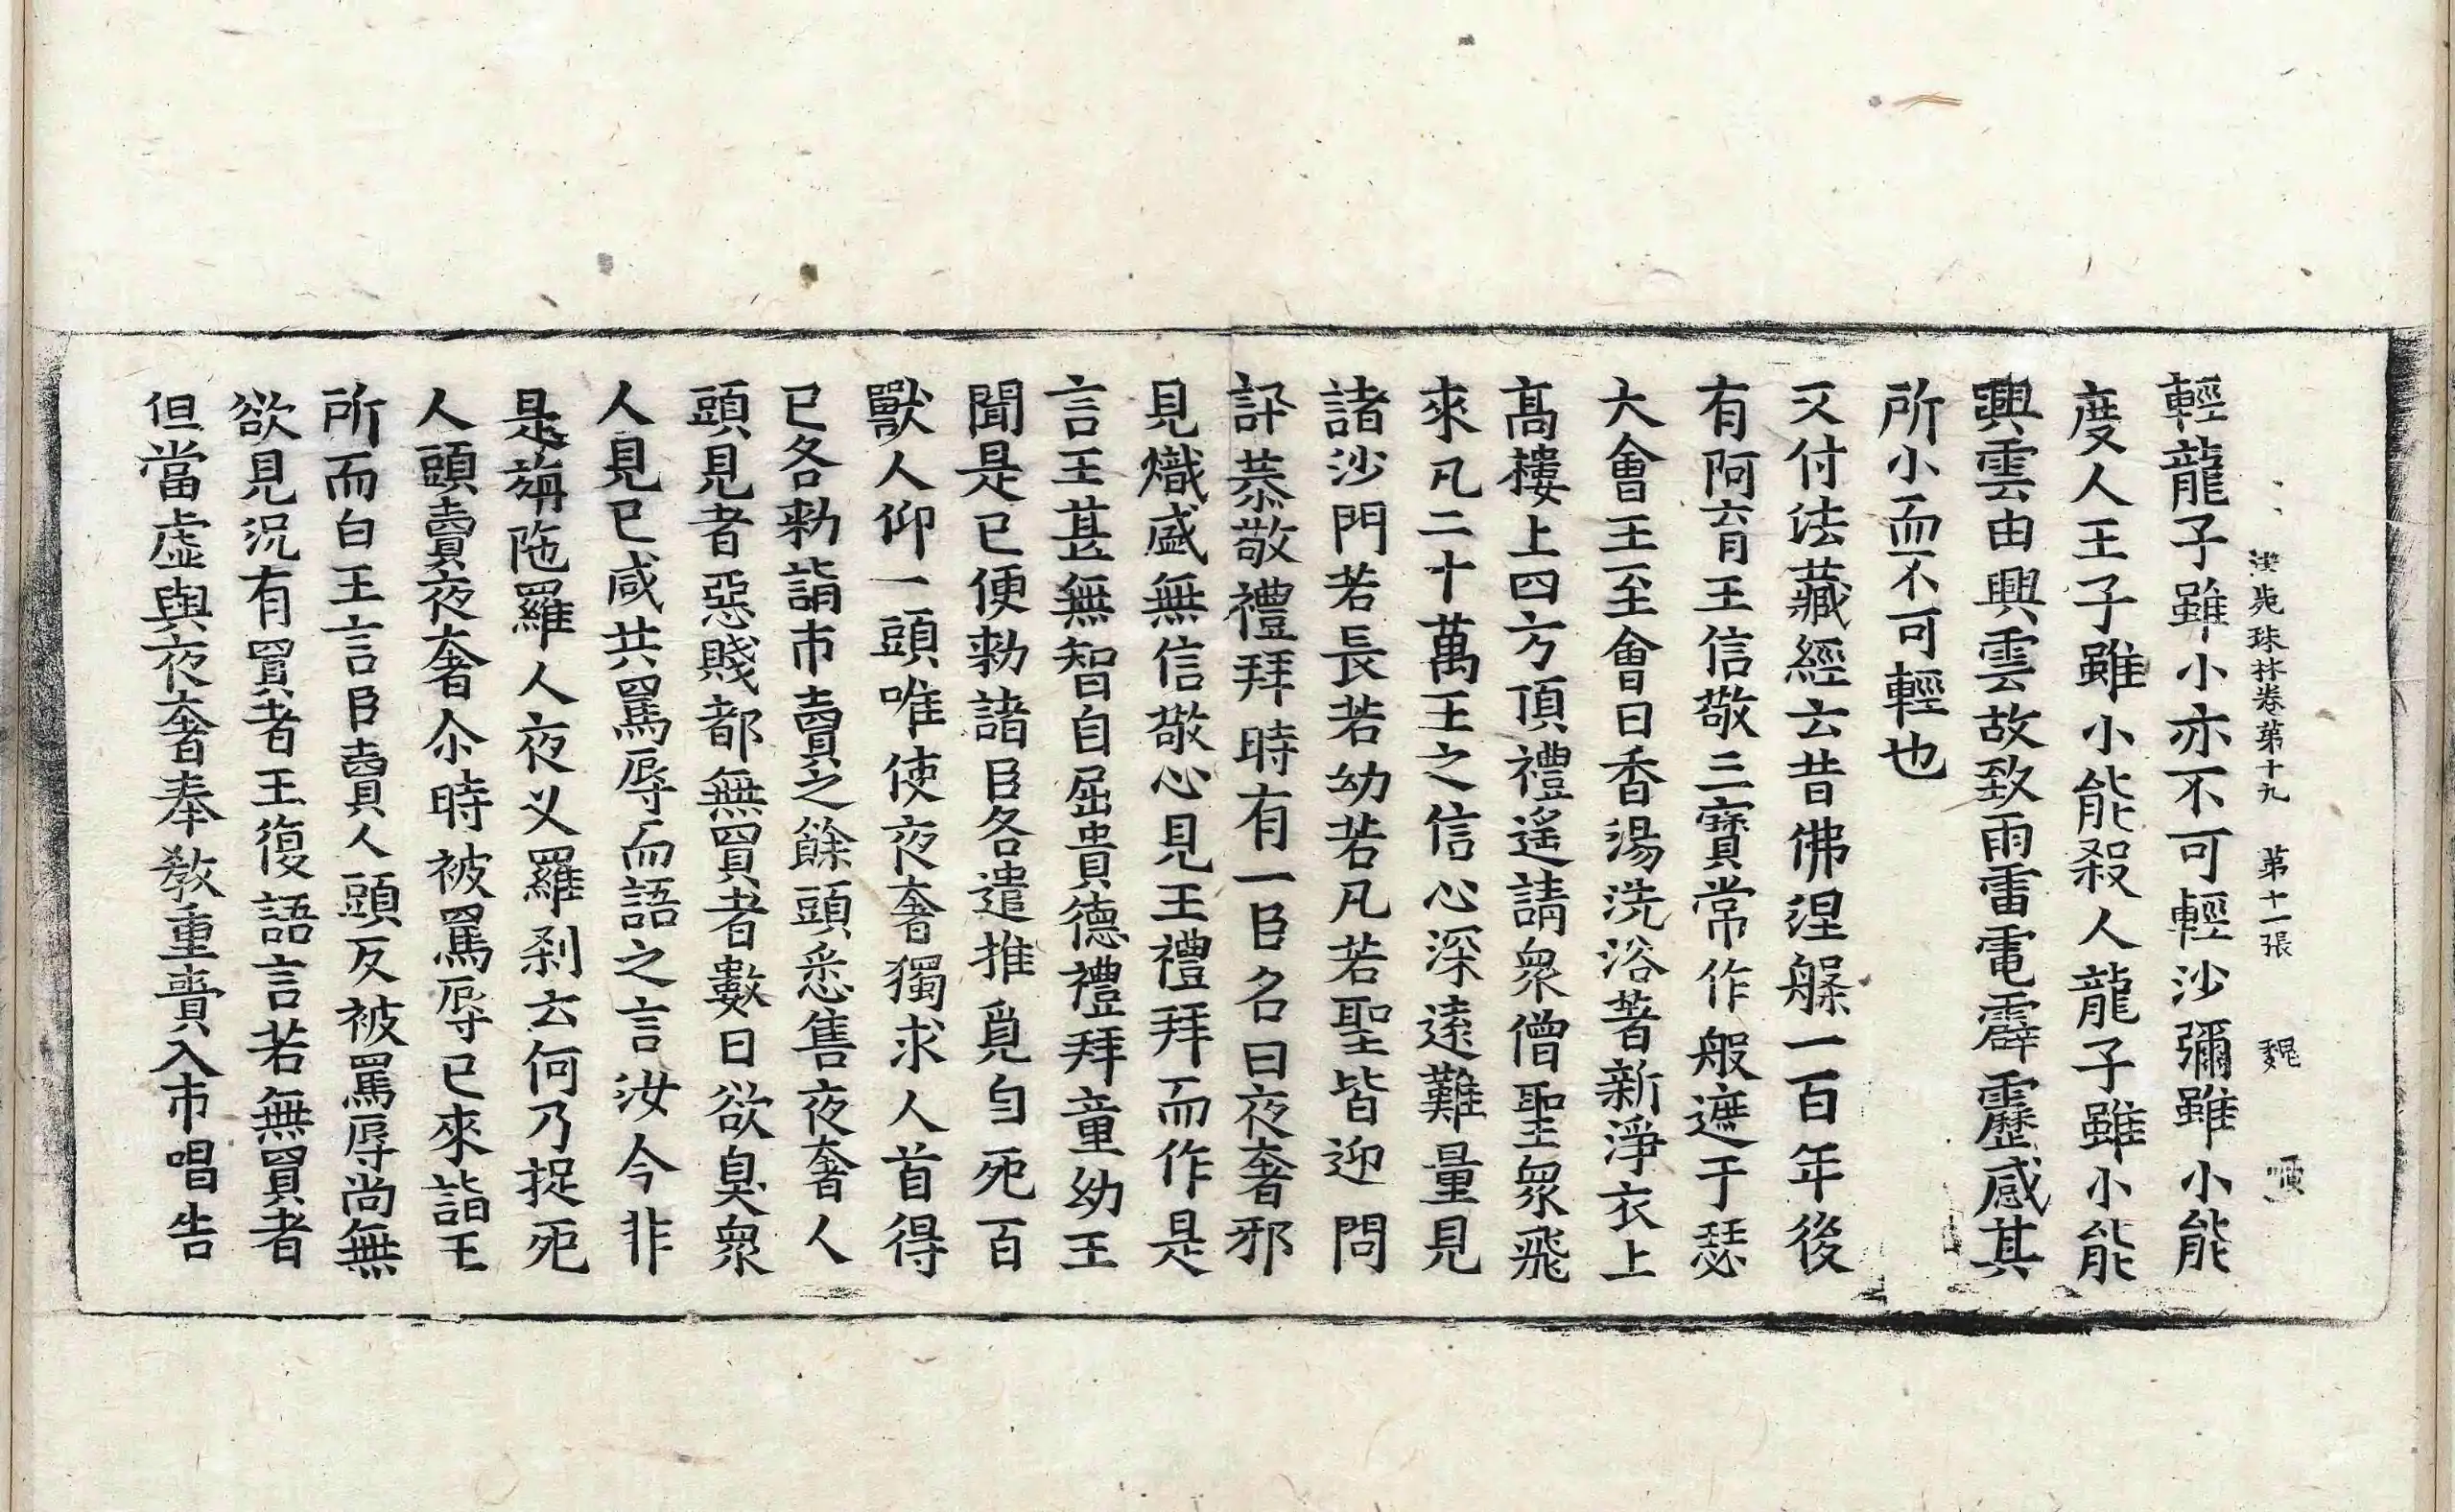 法苑珠林卷第十九 第十一張 魏
輕龍子雖小亦不可輕沙彌雖小能
度人王子雖小能殺人龍子雖小能
興雲由興雲故致雨雷電霹靂感其
所小而不可輕也
又付法藏經云昔佛涅槃一百年後
有阿育王信敬三寶常作般遮于瑟
大會王至會日香湯洗浴著新淨衣上
髙樓上四方頂禮遙請衆僧聖衆飛
來凡二十萬王之信心深遠難量見
諸沙門若長若幼若凡若聖皆迎問
訊恭敬禮拜時有一臣名曰夜奢邪
見熾盛無信敬心見王禮拜而作是
言王甚無智自屈貴德禮拜童幼王
聞是已便勑諸臣各遣推覓自死百
獸人仰一頭唯使夜奢獨求人首得
已各勑詣市賣之餘頭悉售夜奢人
頭見者惡賤都無買者數日欲臭衆
人見已咸共罵辱而語之言汝今非
是旃陁羅人夜叉羅刹云何乃捉死
人頭賣夜奢尒時被罵辱已來詣王
所而白王言臣賣人頭反被罵辱尚無
欲見況有買者王復語言若無買者
但當虛與夜奢奉教重賷入市唱告